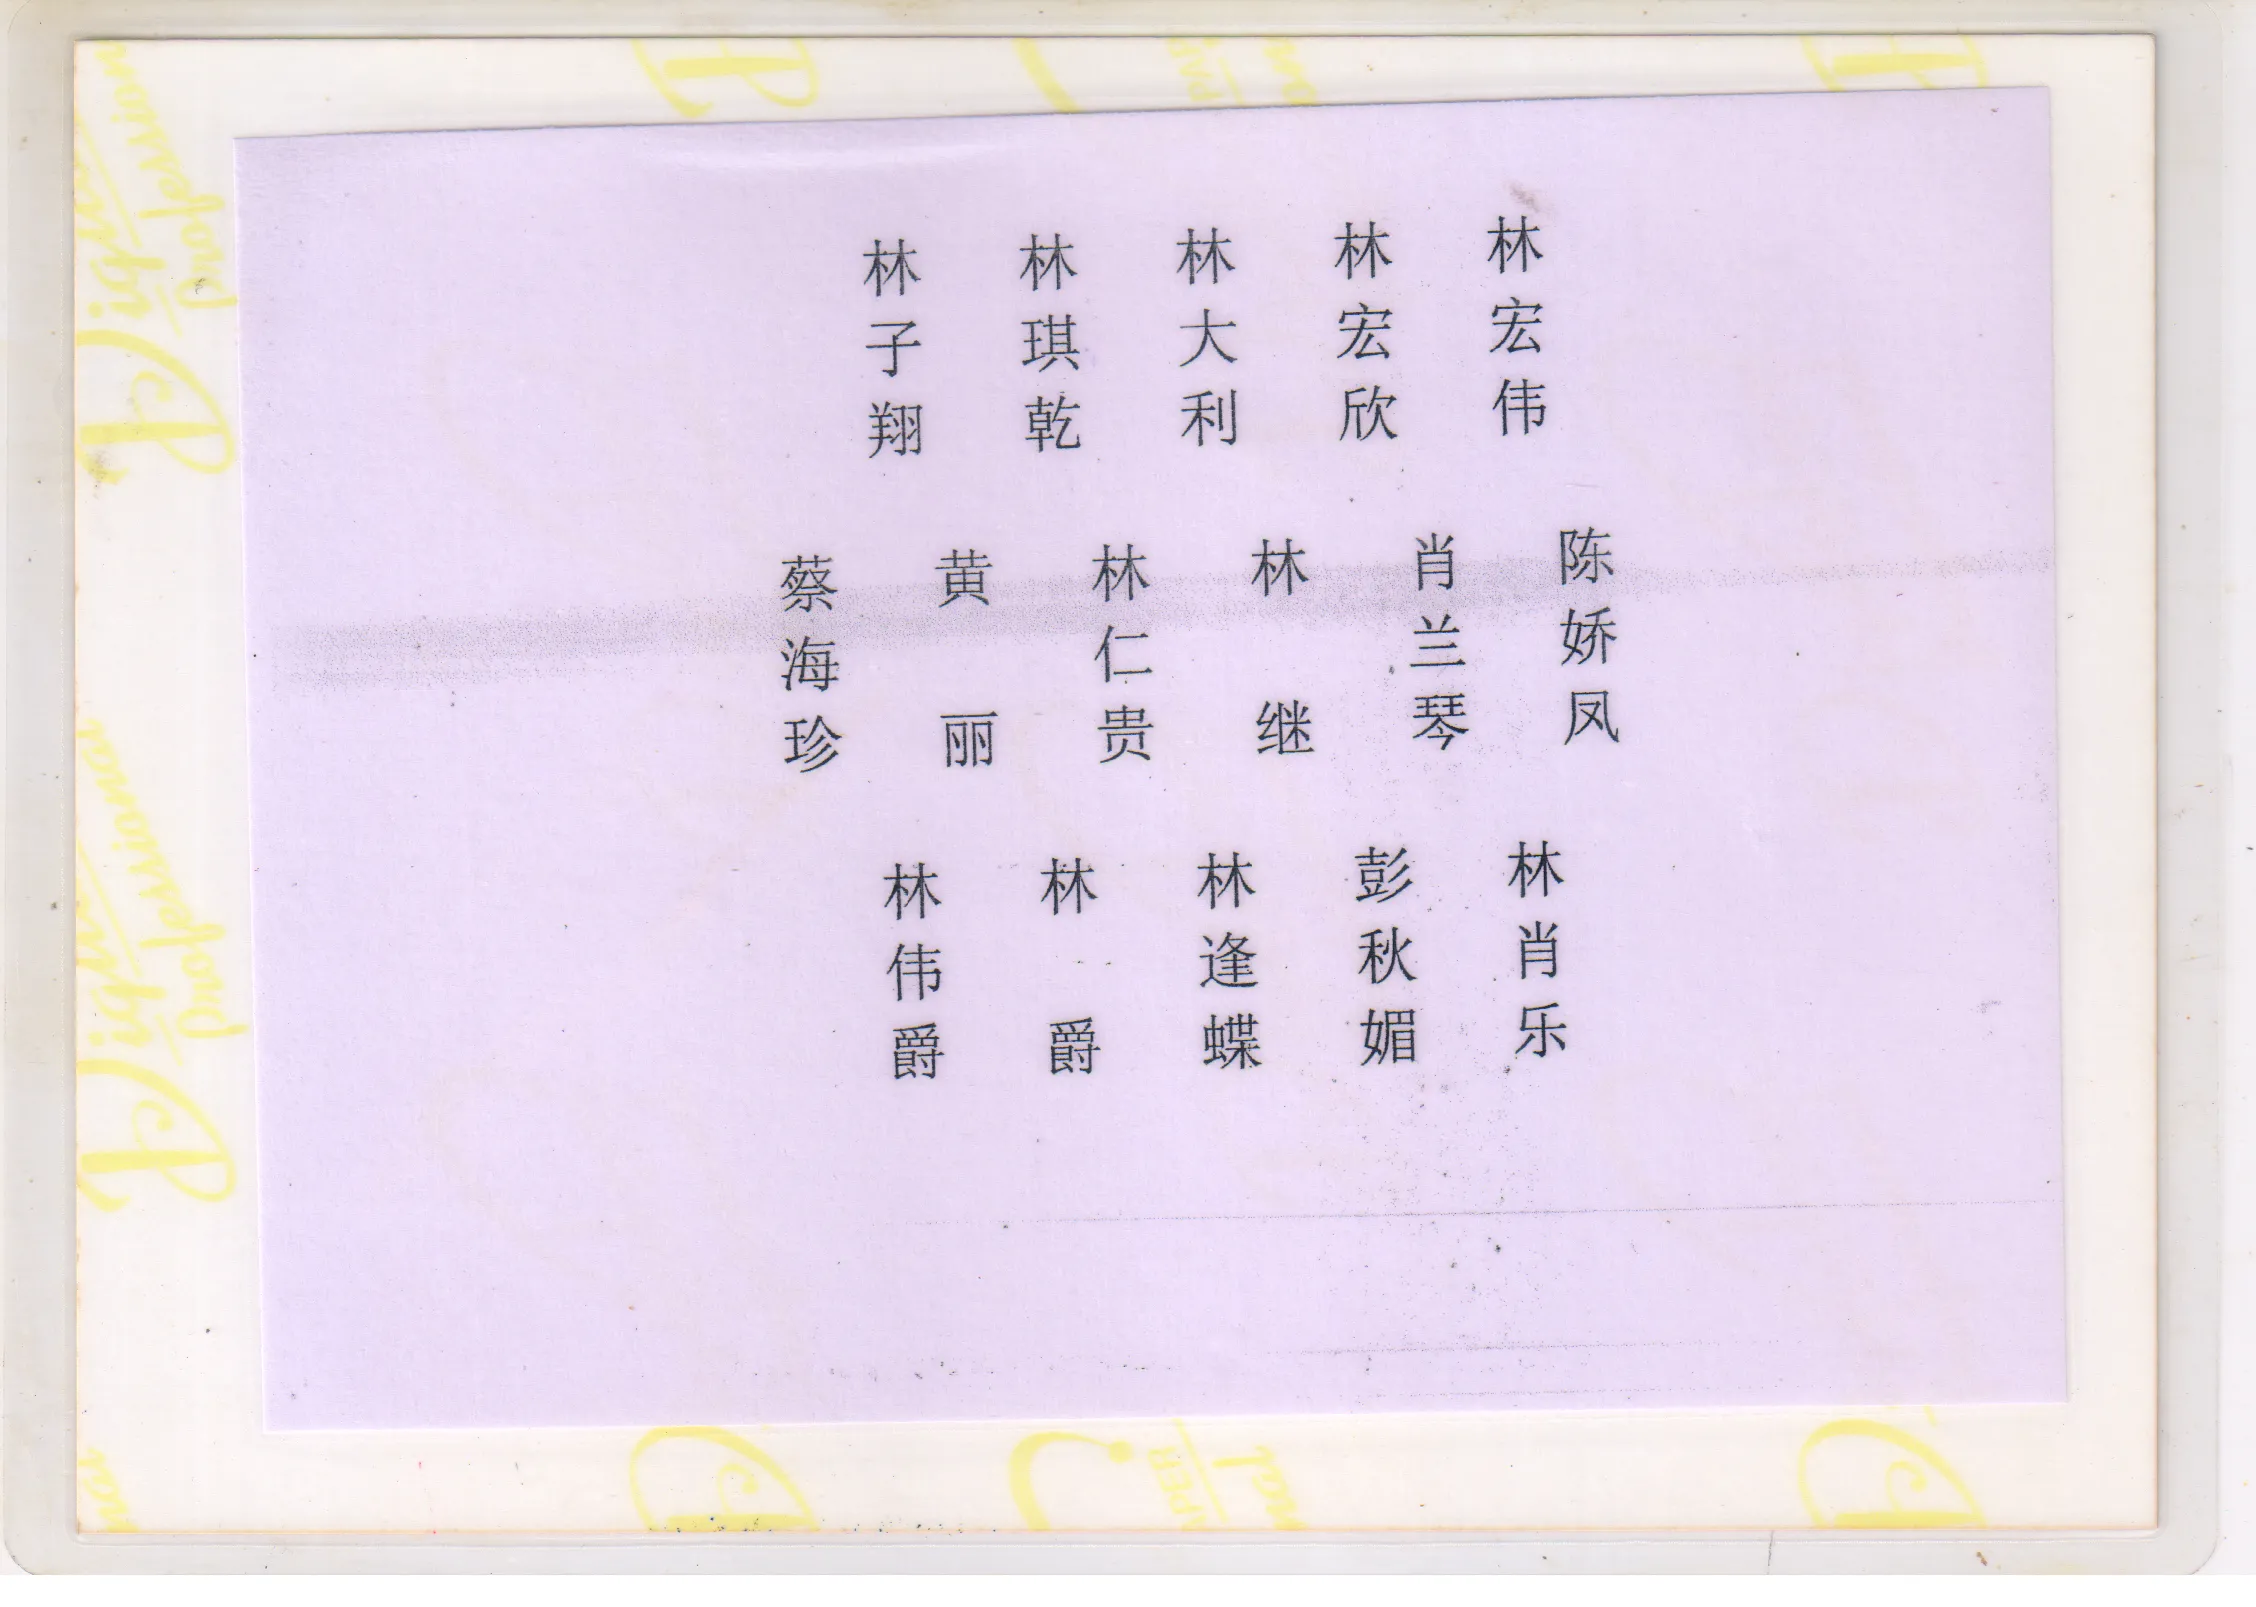 林子翔
林琪乾
林大利
林宏欣
林宏伟
蔡海珍
黄丽
林仁贵
林继
肖兰琴
陈娇凤
林伟爵
林爵
林逢蝶
彭秋媚
林肖乐
Digital
Professional
Professional
PAPER